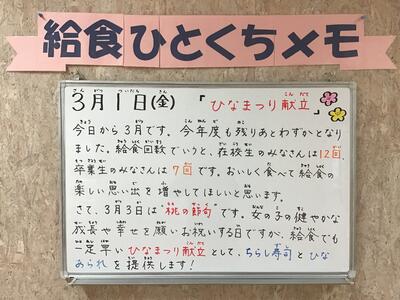 給食ひとくちメモ
3月1日(金) 「ひなまつり献立」
今日から3月です。今年度も残りあとわずかとなり
ました。給食回数でいうと、在校生のみなさんは12回、
卒業生のみなさんは7回です。おいしく食べて給食の
楽しい思い出を増やしてほしいと思います。
さて、3月3日は"桃の節句"です。女の子の健やかな
成長や幸せを願いお祝いする日ですが、給食でも
一足早いひなまつり献立として、ちらし寿司とひな
あられを提供します!